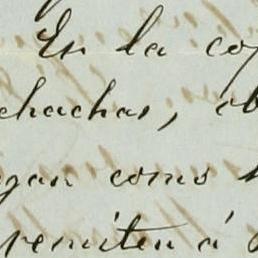 En la cop
chachas, ob
gan como
remiten á